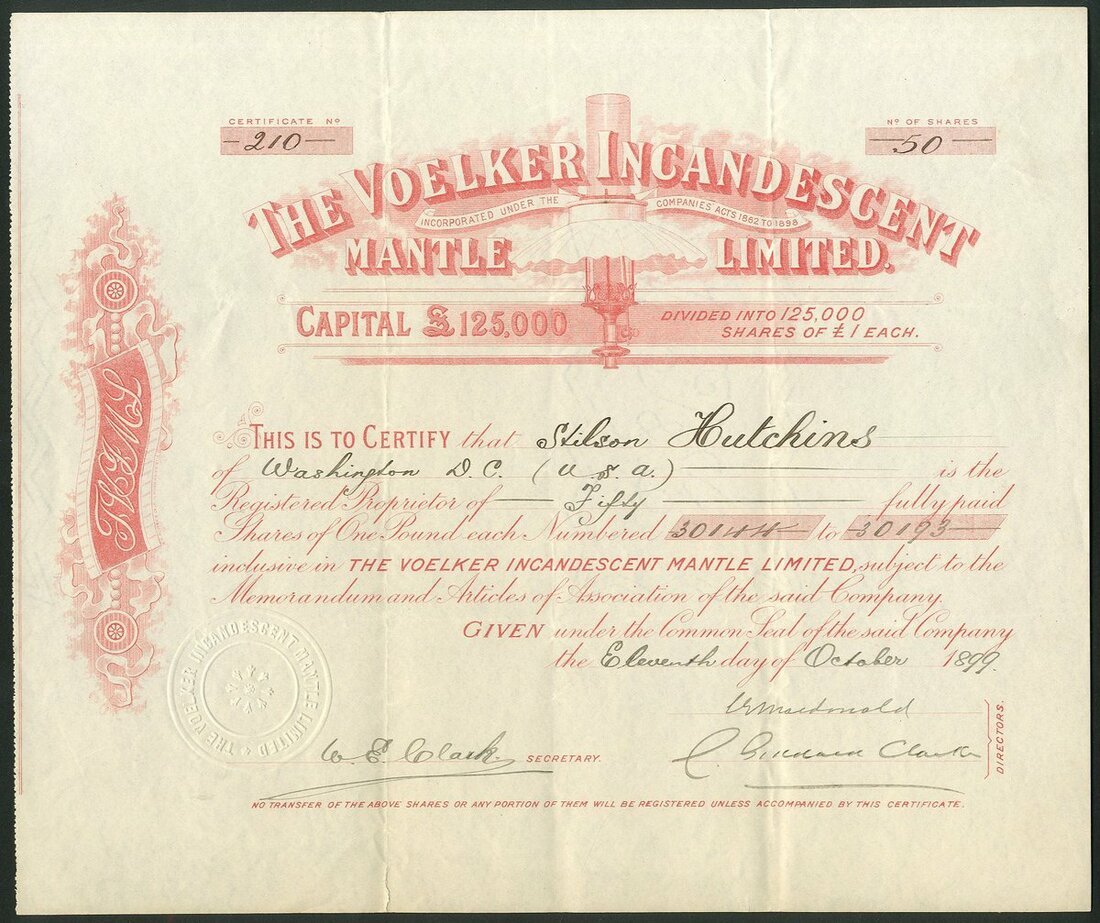 CERTIFICATE Nº
210
Nº OF SHARES
50
THE VOELKER INCANDESCENT
INCORPORATED UNDER THE COMPANIES ACTS 1862 TO 1898
MANTLE LIMITED.
CAPITAL £125,000
DIVIDED INTO 125,000
SHARES OF £1 EACH.
THIS IS TO CERTIFY that Stilson Hutchins
of Washington D.C. (U.S.A.) is the
Registered Proprietor of Fifty fully paid
Shares of One Pound each Numbered 30144 to 30193
inclusive in THE VOELKER INCANDESCENT MANTLE LIMITED, subject to the
Memorandum and Articles of Association of the said Company.
GIVEN under the Common Seal of the said Company
the Eleventh day of October 1899.
THE VOELKER INCANDESCENT MANTLE LIMITED
Macdonald
W. E. Clark SECRETARY.
C. Goddard Clarke
DIRECTORS.
NO TRANSFER OF THE ABOVE SHARES OR ANY PORTION OF THEM WILL BE REGISTERED UNLESS ACCOMPANIED BY THIS CERTIFICATE.